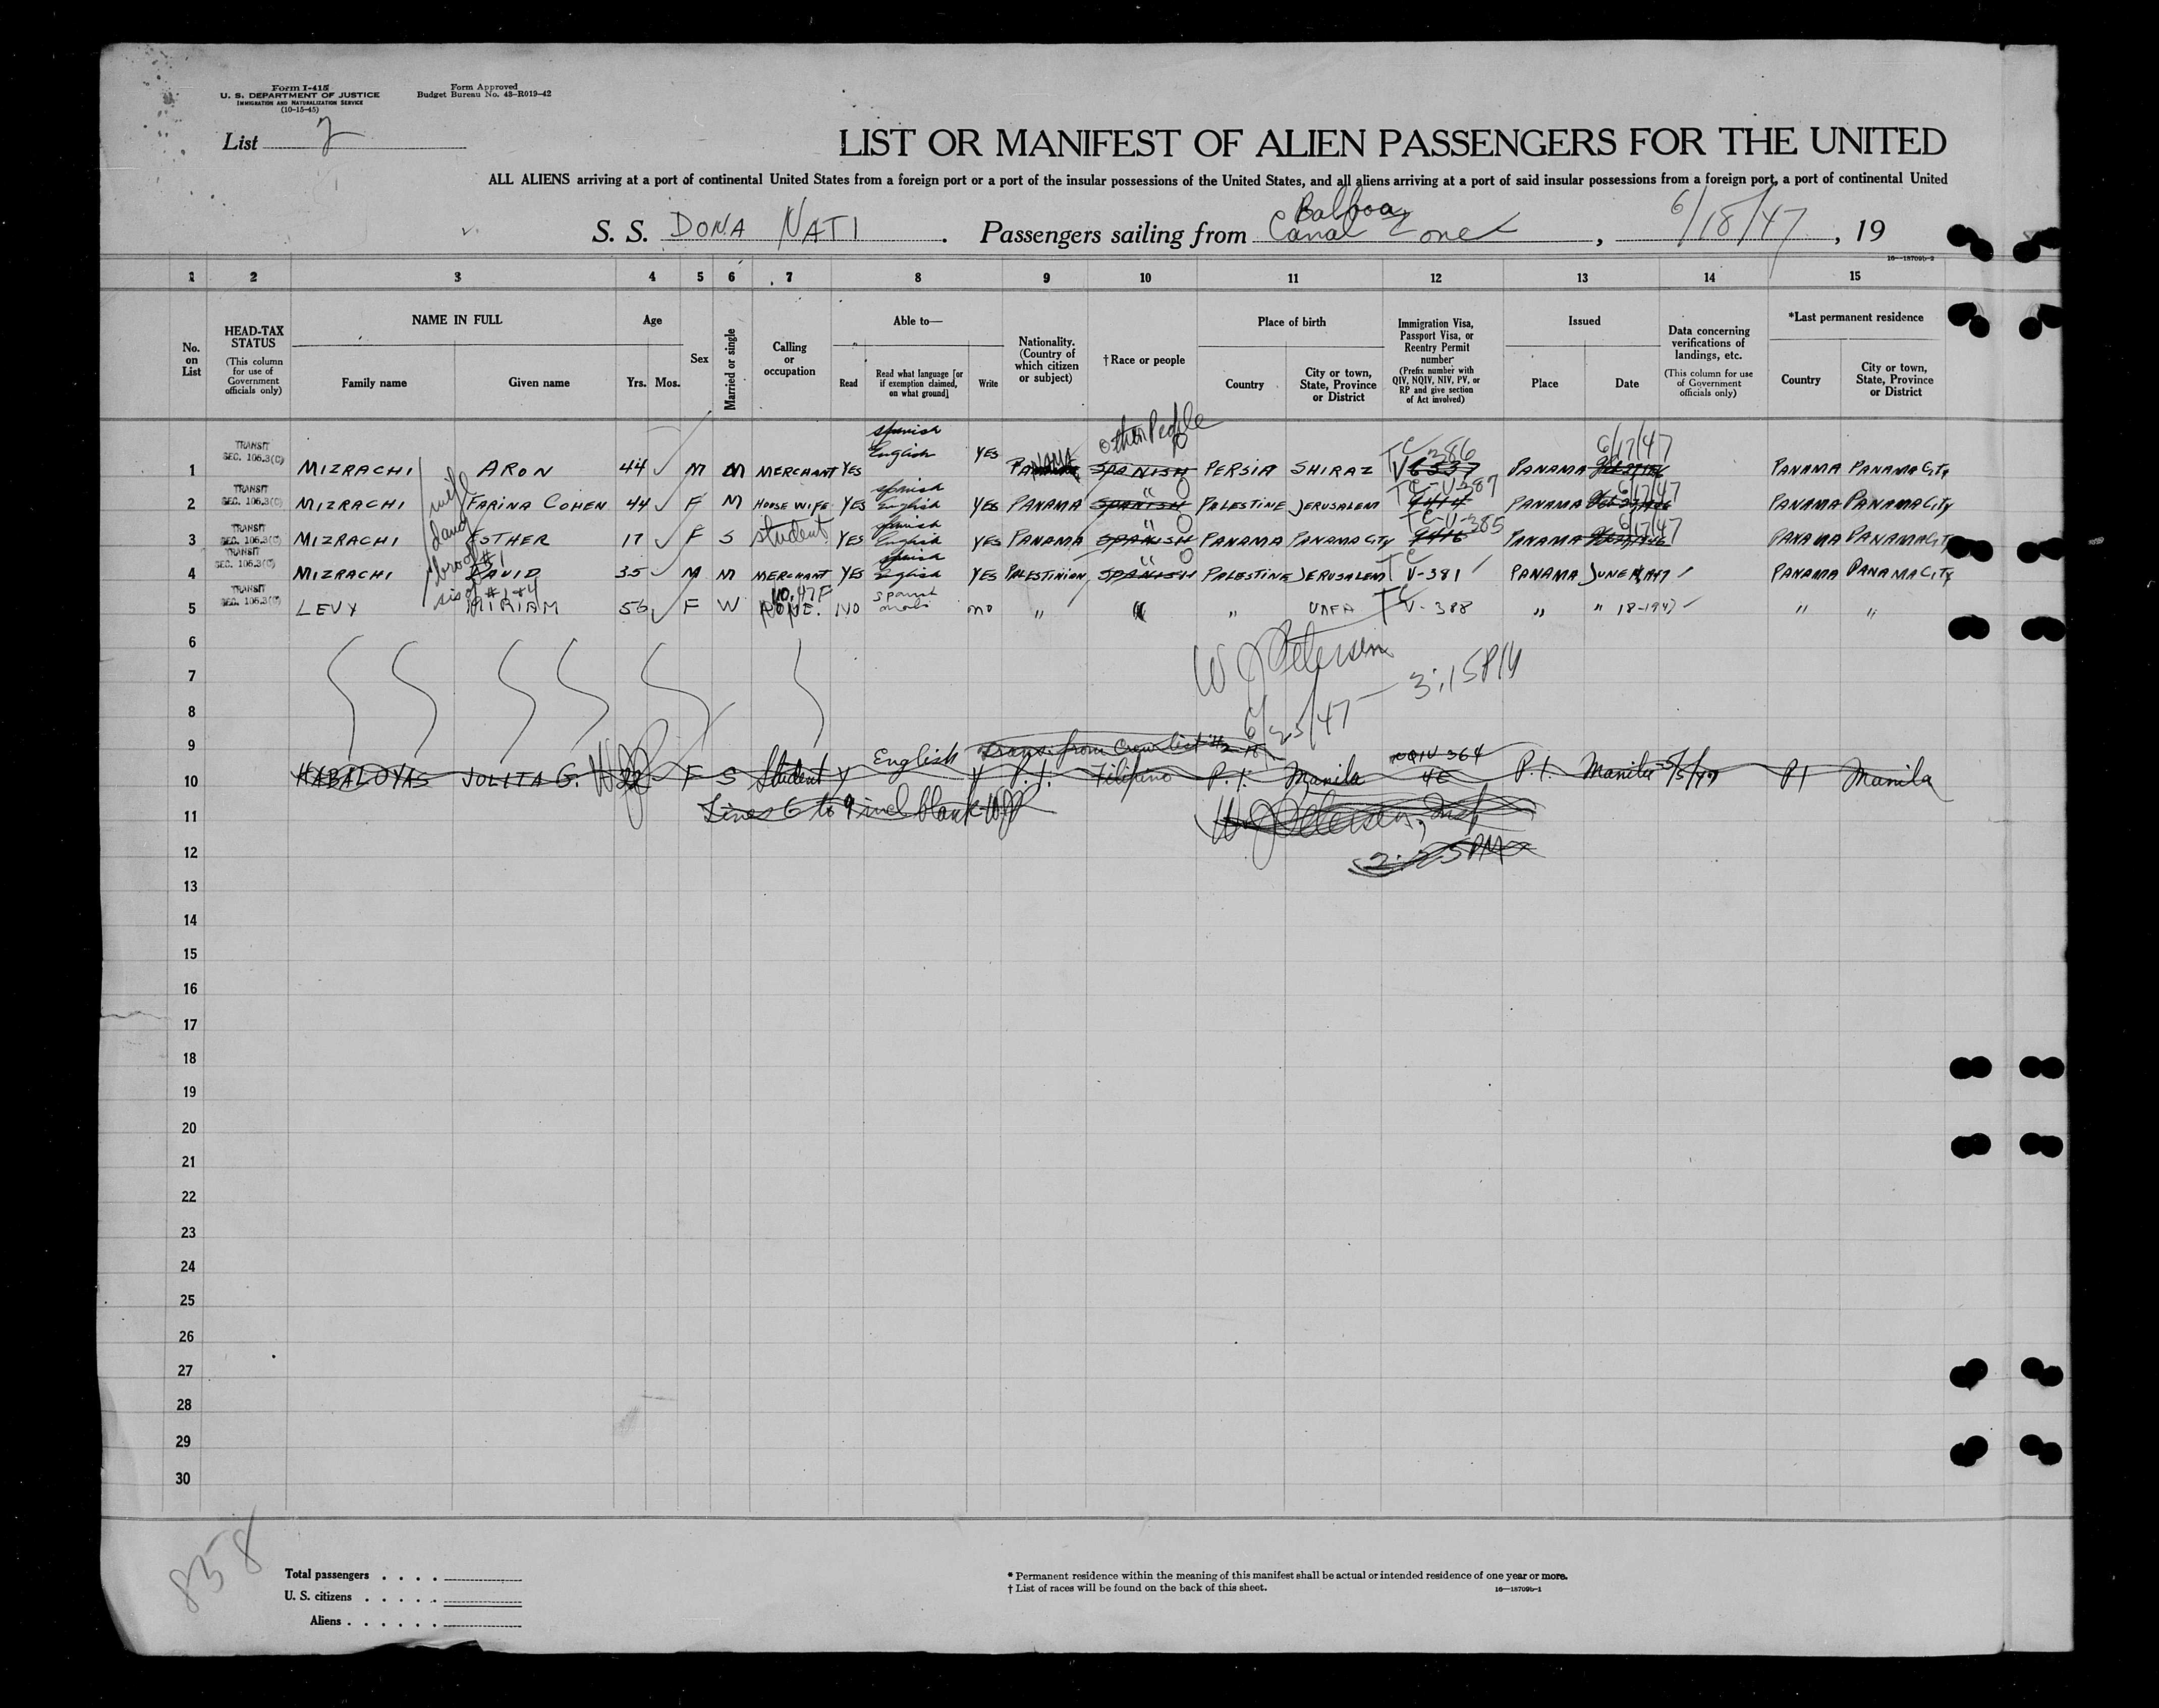 Form I-415
U. S. DEPARTMENT OF JUSTICE
IMMIGRATION AND NATURALIZATION SERVICE
(10-15-45)
Form Approved
Budget Bureau No. 43-R019-42
List 2
LIST OR MANIFEST OF ALIEN PASSENGERS FOR THE UNITED
ALL ALIENS arriving at a port of continental United States from a foreign port or a port of the insular possessions of the United States, and all aliens arriving at a port of said insular possessions from a foreign port, a port of continental United
Balboa
S. S. DONA NATI . Passengers sailing from Canal Zone , 6/18/47 , 19
16—18709b-2
1 2 3 4 5 6 7 8 9 10 11 12 13 14 15
No. on List
HEAD-TAX STATUS (This column for use of Government officials only)
NAME IN FULL Family name Given name
Age Yrs. Mos.
Sex
Married or single
Calling or occupation
Able to— Read Read what language [or if exemption claimed, on what ground] Write
Nationality. (Country of which citizen or subject)
†Race or people
Place of birth Country City or town, State, Province or District
Immigration Visa, Passport Visa, or Reentry Permit number (Prefix number with QIV, NQIV, NIV, PV, or RP and give section of Act involved)
Issued Place Date
Data concerning verifications of landings, etc. (This column for use of Government officials only)
*Last permanent residence Country City or town, State, Province or District
Spanish Other People TC 386 6/17/47
1 TRANSIT SEC. 105.3(C) MIZRACHI ARON 44 M M MERCHANT YES English YES PANAMA SPANISH PERSIA SHIRAZ PANAMA PANAMA PANAMA CITY
Spanish " TC-V-387 6/17/47
2 TRANSIT SEC. 105.3(C) MIZRACHI wife FARINA COHEN 44 F M HOUSE WIFE YES English YES PANAMA SPANISH PALESTINE JERUSALEM PANAMA PANAMA PANAMA CITY
Spanish " TC-V-385 6/17/47
3 TRANSIT SEC. 105.3(C) MIZRACHI daug ESTHER 17 F S student YES English YES PANAMA SPANISH PANAMA PANAMA CITY 9416 PANAMA PANAMA PANAMA CITY
Spanish " TC
4 TRANSIT SEC. 105.3(C) MIZRACHI bro of #1 DAVID 35 M M MERCHANT YES English YES PALESTINIAN SPANISH PALESTINE JERUSALEM V-381 PANAMA JUNE 1947 PANAMA PANAMA CITY
5 TRANSIT SEC. 105.3(C) LEVY sis of #1 & 4 MIRIAM 56 F W NONE. NO Spanish no " " TC V-388 " " 18-1947 " "
6
W J Petersen
7
3:15 PM
8
6/23/47
9 Trans. from Crew list
10 KABALOYAS JOLITA G. 22 F S Student Y English Y P.I. Filipino P.I. Manila NQIV 364 4E P.I. Manila 5/5/47 PI Manila
11 Lines 6 to 9 incl blank WJP W J Petersen, Insp
12 2:25 PM
13
14
15
16
17
18
19
20
21
22
23
24
25
26
27
28
29
30
858
Total passengers . . . .
U. S. citizens . . . . .
Aliens . . . . . .
* Permanent residence within the meaning of this manifest shall be actual or intended residence of one year or more.
† List of races will be found on the back of this sheet.
16—18709b-1